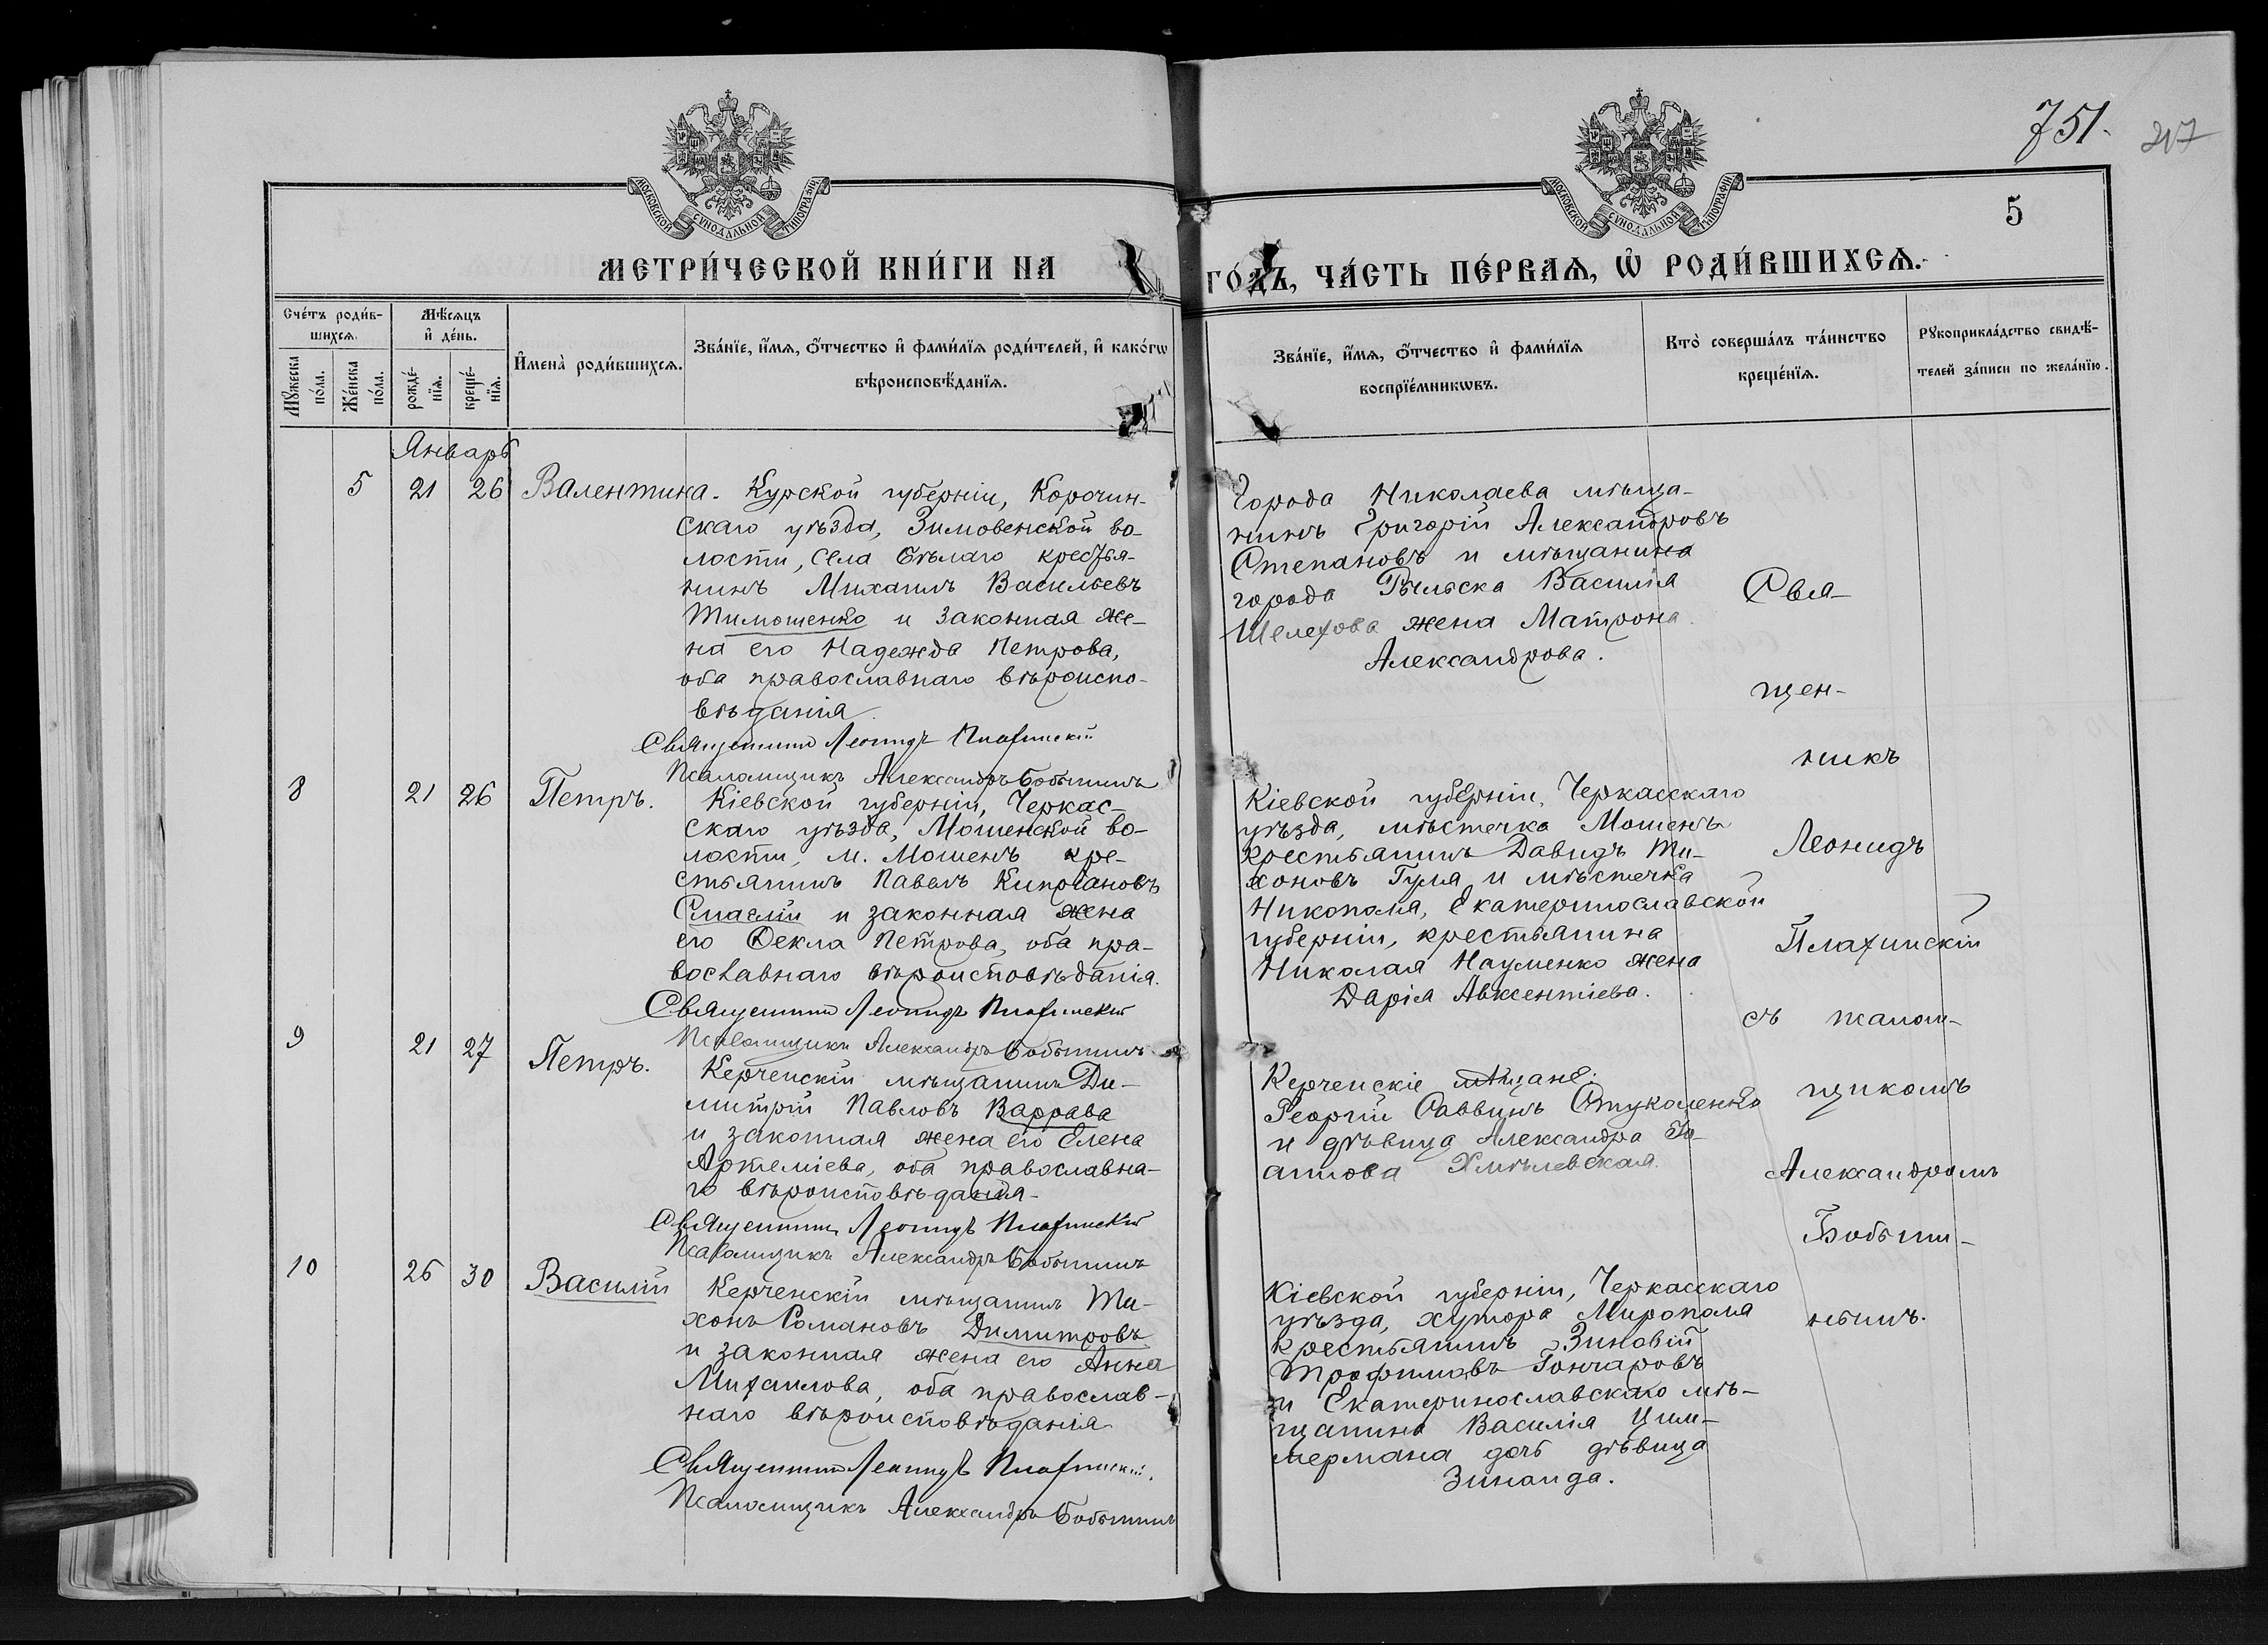 751.
217
МОСКОВСКОЙ СѴНОДАЛЬНОЙ ТИПОГРАФІИ
МОСКОВСКОЙ СѴНОДАЛЬНОЙ ТИПОГРАФІИ
5
МЕТРИ́ЧЕСКОЙ КНИ́ГИ НА
ГО́ДЪ, ЧА́СТЬ ПЕ́РВАѦ, Ѡ҆ РОДИ́ВШИХСѦ.
Сче́тъ роди́в-
шихсѧ.
Мꙋ́жеска по́ла.
Же́нска по́ла.
Мѣ́сѧцъ
и҆ де́нь.
рожде́-
нїѧ.
креще́-
нїѧ.
И҆мена̀ роди́вшихсѧ.
Зва́нїе, и҆́мѧ, ѻ҆́тчество и҆ фами́лїѧ роди́телей, и҆ како́гѡ
вѣроисповѣ́данїѧ.
Зва́нїе, и҆́мѧ, ѻ҆́тчество и҆ фами́лїѧ
воспрїе́мникѡвъ.
Кто̀ соверша́лъ та́инство
креще́нїѧ.
Рꙋкоприкла́дство свидѣ́-
телей за́писи по жела́нїю.
Январь
5 21 26 Валентина. Курской губерніи, Корочин-
скаго уѣзда, Зимовенской во-
лости, села Бѣлаго крестья-
нинъ Михаилъ Васильевъ
Тимошенко и законная же-
на его Надежда Петрова,
оба православнаго вѣроиспо-
вѣданія.
Священникъ Леонидъ Плахинскій
Псаломщикъ Александръ Бобынинъ
Города Николаева мѣща-
нинъ Григорій Александровъ
Степановъ и мѣщанина
города Рыльска Василія
Шелехова жена Матрона
Александрова.
8 21 26 Петръ. Кіевской губерніи, Черкас-
скаго уѣзда, Мошенской во-
лости, м. Мошенъ кре-
стьянинъ Павелъ Кипріановъ
Смаглій и законная жена
его Ѳекла Петрова, оба пра-
вославнаго вѣроисповѣданія.
Священникъ Леонидъ Плахинскій
Псаломщикъ Александръ Бобынинъ
Кіевской губерніи, Черкасскаго
уѣзда, мѣстечка Мошенъ
крестьянинъ Давидъ Ти-
хоновъ Гуля и мѣстечка
Никополя, Екатеринославской
губерніи, крестьянина
Николая Науменко жена
Дарія Авксентіева.
9 21 27 Петръ. Керченскій мѣщанинъ Ди-
митрій Павловъ Варрава
и законная жена его Елена
Артеміева, оба православна-
го вѣроисповѣданія.
Священникъ Леонидъ Плахинскій
Псаломщикъ Александръ Бобынинъ
Керченскіе мѣщане:
Георгій Саввинъ Стуколенко
и дѣвица Александра Іо-
аннова Хмѣлевская.
10 26 30 Василій Керченскій мѣщанинъ Ти-
хонъ Романовъ Димитровъ
и законная жена его Анна
Михаилова, оба православ-
наго вѣроисповѣданія
Священникъ Леонидъ Плахинскій.
Псаломщикъ Александръ Бобынинъ
Кіевской губерніи, Черкасскаго
уѣзда, хутора Мирополя
крестьянинъ Зиновій
Трофимовъ Гончаровъ
и Екатеринославскаго мѣ-
щанина Василія Цим-
мермана дочь дѣвица
Зинаида.
Свя-
щен-
никъ
Леонидъ
Плахинскій
съ псалом-
щикомъ
Александромъ
Бобыни-
нымъ.